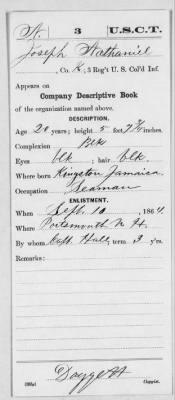 N. 3 U.S.C.T.
Joseph Nathaniel
, Co. K, 3 Reg't U. S. Col'd Inf.
Appears on
Company Descriptive Book
of the organization named above.
DESCRIPTION.
Age 21 years; height 5 feet, 7 inches.
Complexion Blk
Eyes blk ; hair blk.
Where born Kingston Jamaica
Occupation Seaman
ENLISTMENT.
When Sept. 10 , 1864.
Where Portsmouth N. H.
By whom Capt. Hall; term 3 y'rs.
Remarks:
Doggett
Copyist.